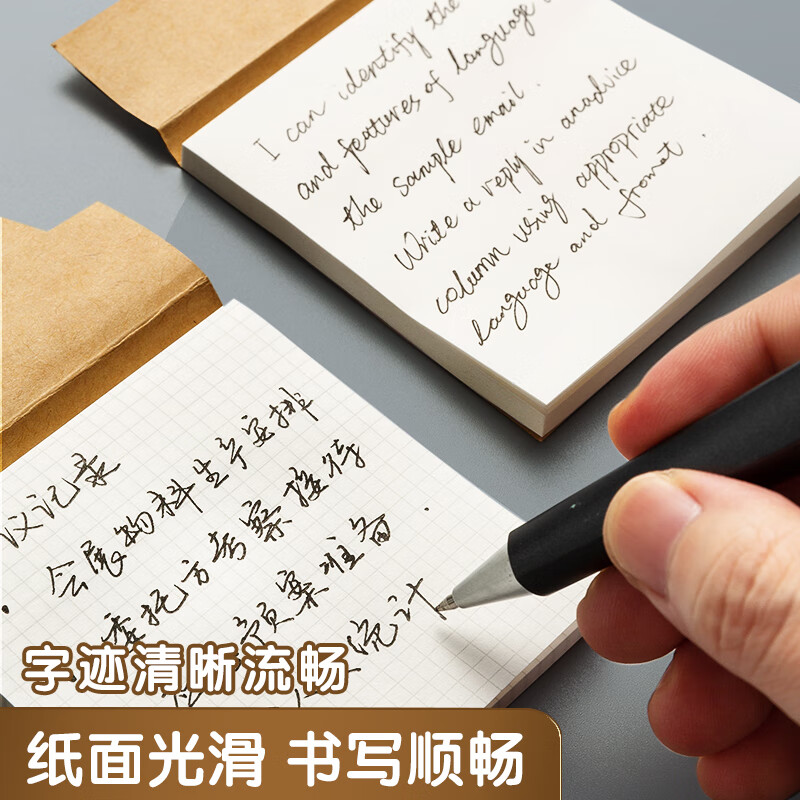 I can identify the
and features of language
the sample email.
Write a reply in an advice
column using appropriate
language and fromat.
议记录
会展物料生产安排
委托方考察接待
预案准备
统计
字迹清晰流畅
纸面光滑 书写顺畅